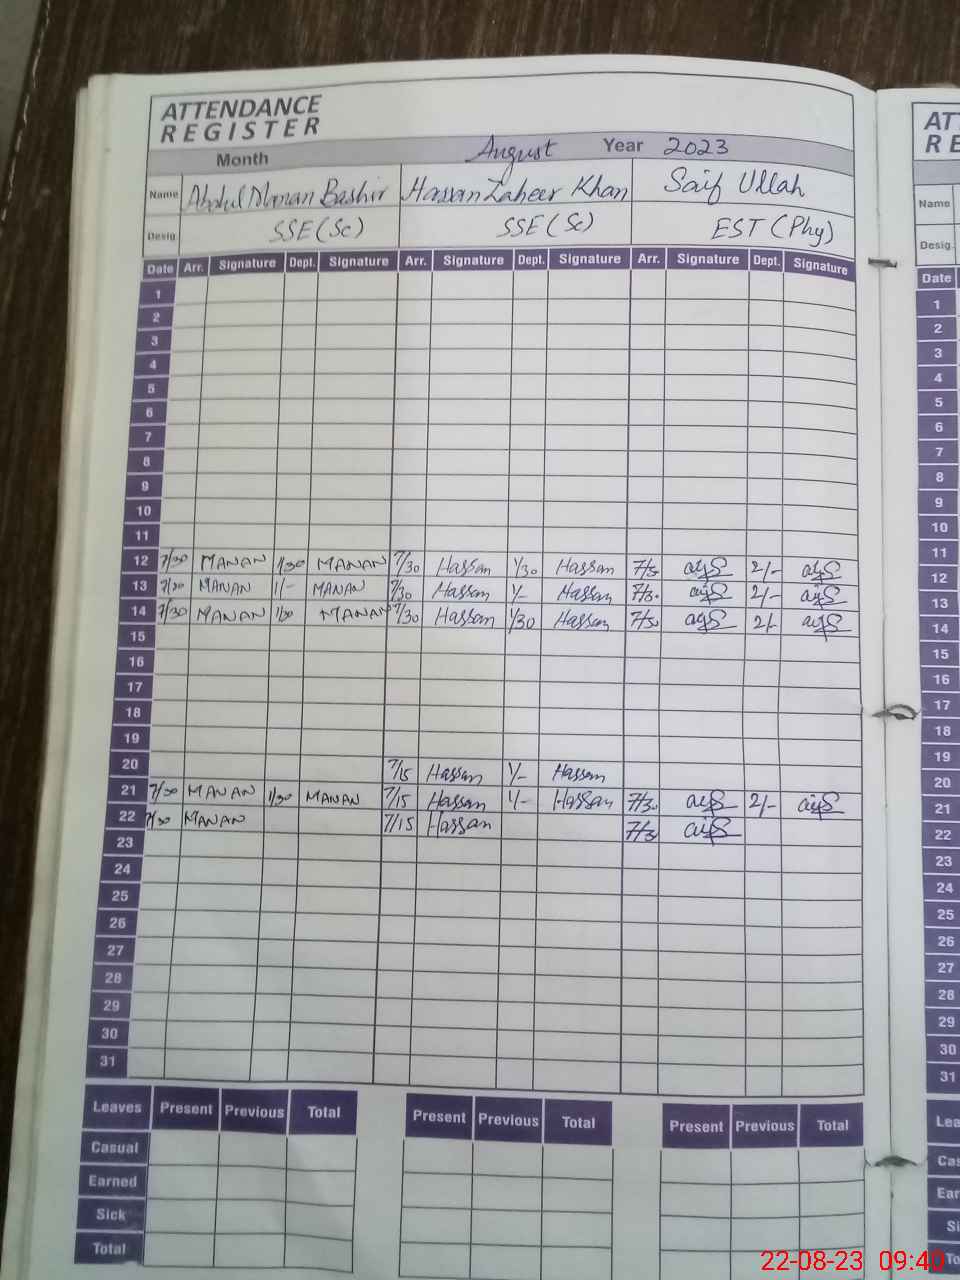 ATTENDANCE
REGISTER
Month August Year 2023
Name Abdul Manan Bashir Hassan Zaheer Khan Saif Ullah
Desig. SSE (Sc) SSE (Sc) EST (Phy)
Date Arr. Signature Dept. Signature Arr. Signature Dept. Signature Arr. Signature Dept. Signature
1
2
3
4
5
6
7
8
9
10
11
12 7/30 MANAN 1/30 MANAN 7/30 Hassan 1/30 Hassan 7/30 2/-
13 7/30 MANAN 1/- MANAN 7/30 Hassan 1/- Hassan 7/30 2/-
14 7/30 MANAN 1/30 MANAN 7/30 Hassan 1/30 Hassan 7/30 2/-
15
16
17
18
19
20 7/15 Hassan 1/- Hassan
21 7/30 MANAN 1/30 MANAN 7/15 Hassan 1/- Hassan 7/30 2/-
22 7/30 MANAN 7/15 Hassan 7/30
23
24
25
26
27
28
29
30
31
Leaves Present Previous Total Present Previous Total Present Previous Total
Casual
Earned
Sick
Total
AT
RE
Name
Desig.
Date
1
2
3
4
5
6
7
8
9
10
11
12
13
14
15
16
17
18
19
20
21
22
23
24
25
26
27
28
29
30
31
Lea
Cas
Ear
Si
To
22-08-23 09:40